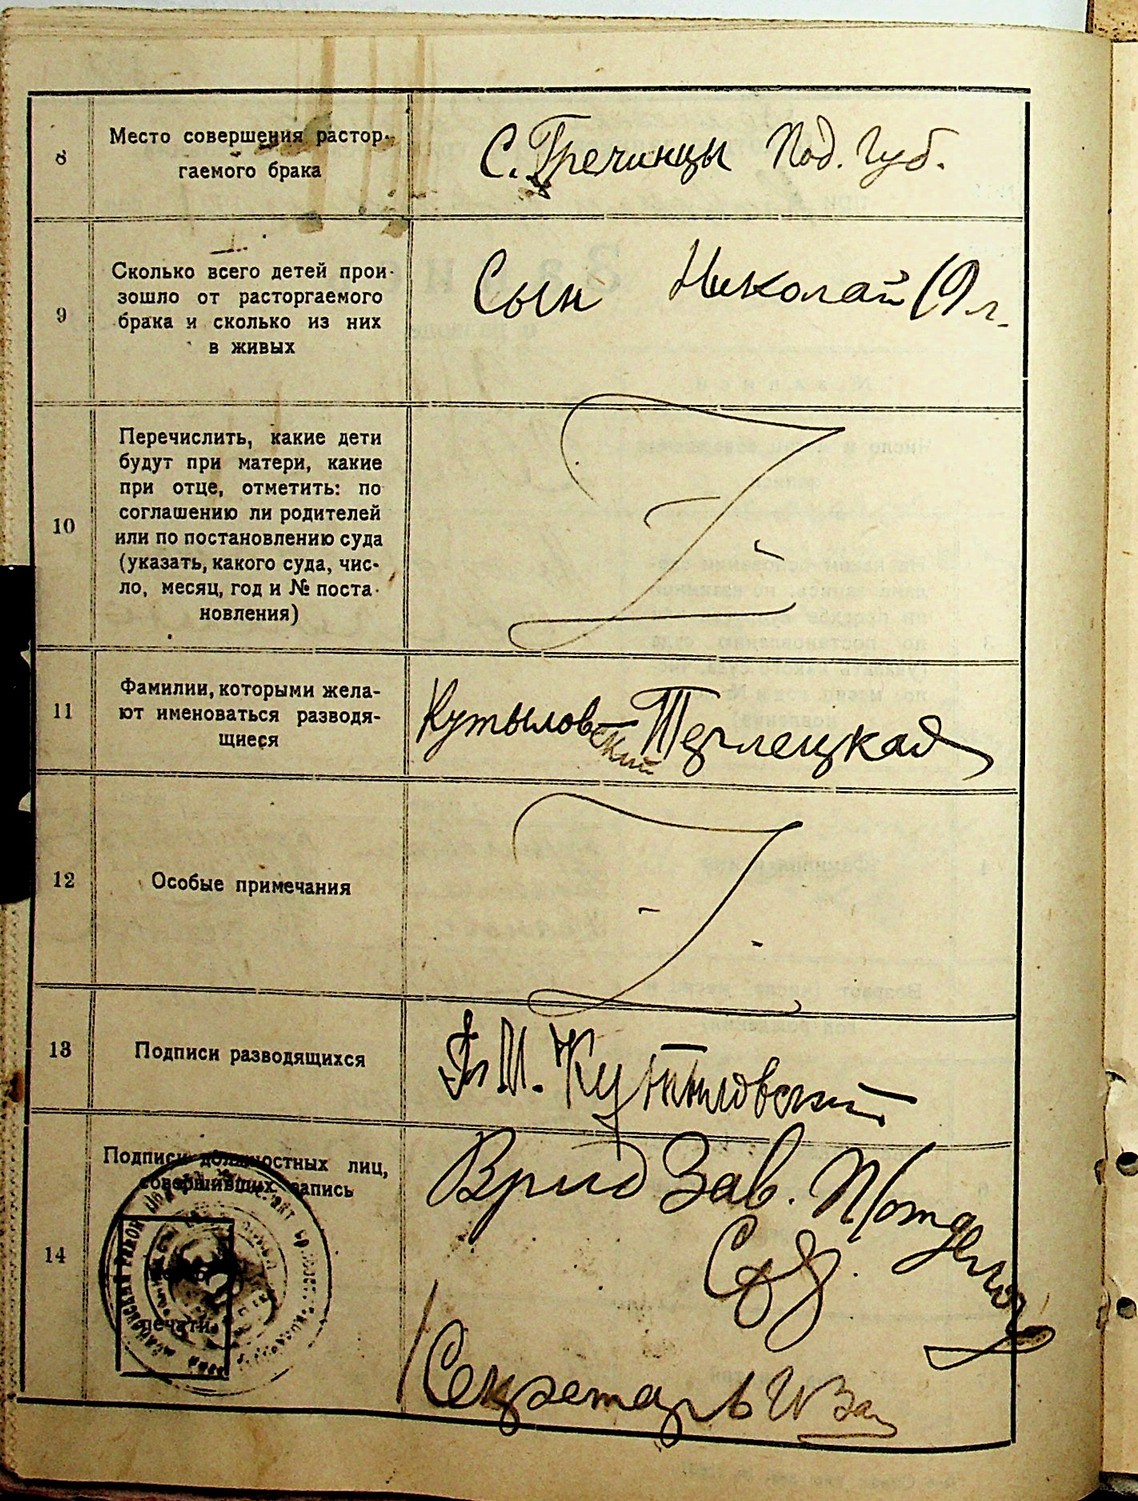 8
Место совершения растор-
гаемого брака
С. Гречинцы Под. Губ.
9
Сколько всего детей прои-
зошло от расторгаемого
брака и сколько из них
в живых
Сын Николай 19 л.
10
Перечислить, какие дети
будут при матери, какие
при отце, отметить: по
соглашению ли родителей
или по постановлению суда
(указать, какого суда, чис-
ло, месяц, год и № поста-
новления)
11
Фамилии, которыми жела-
ют именоваться разводя-
щиеся
Кутыловский Терлецкая
12
Особые примечания
13
Подписи разводящихся
М. Кутыловский
14
Подписи должностных лиц,
совершивших запись
печати
Врид Зав. П/отделом
Секретарь